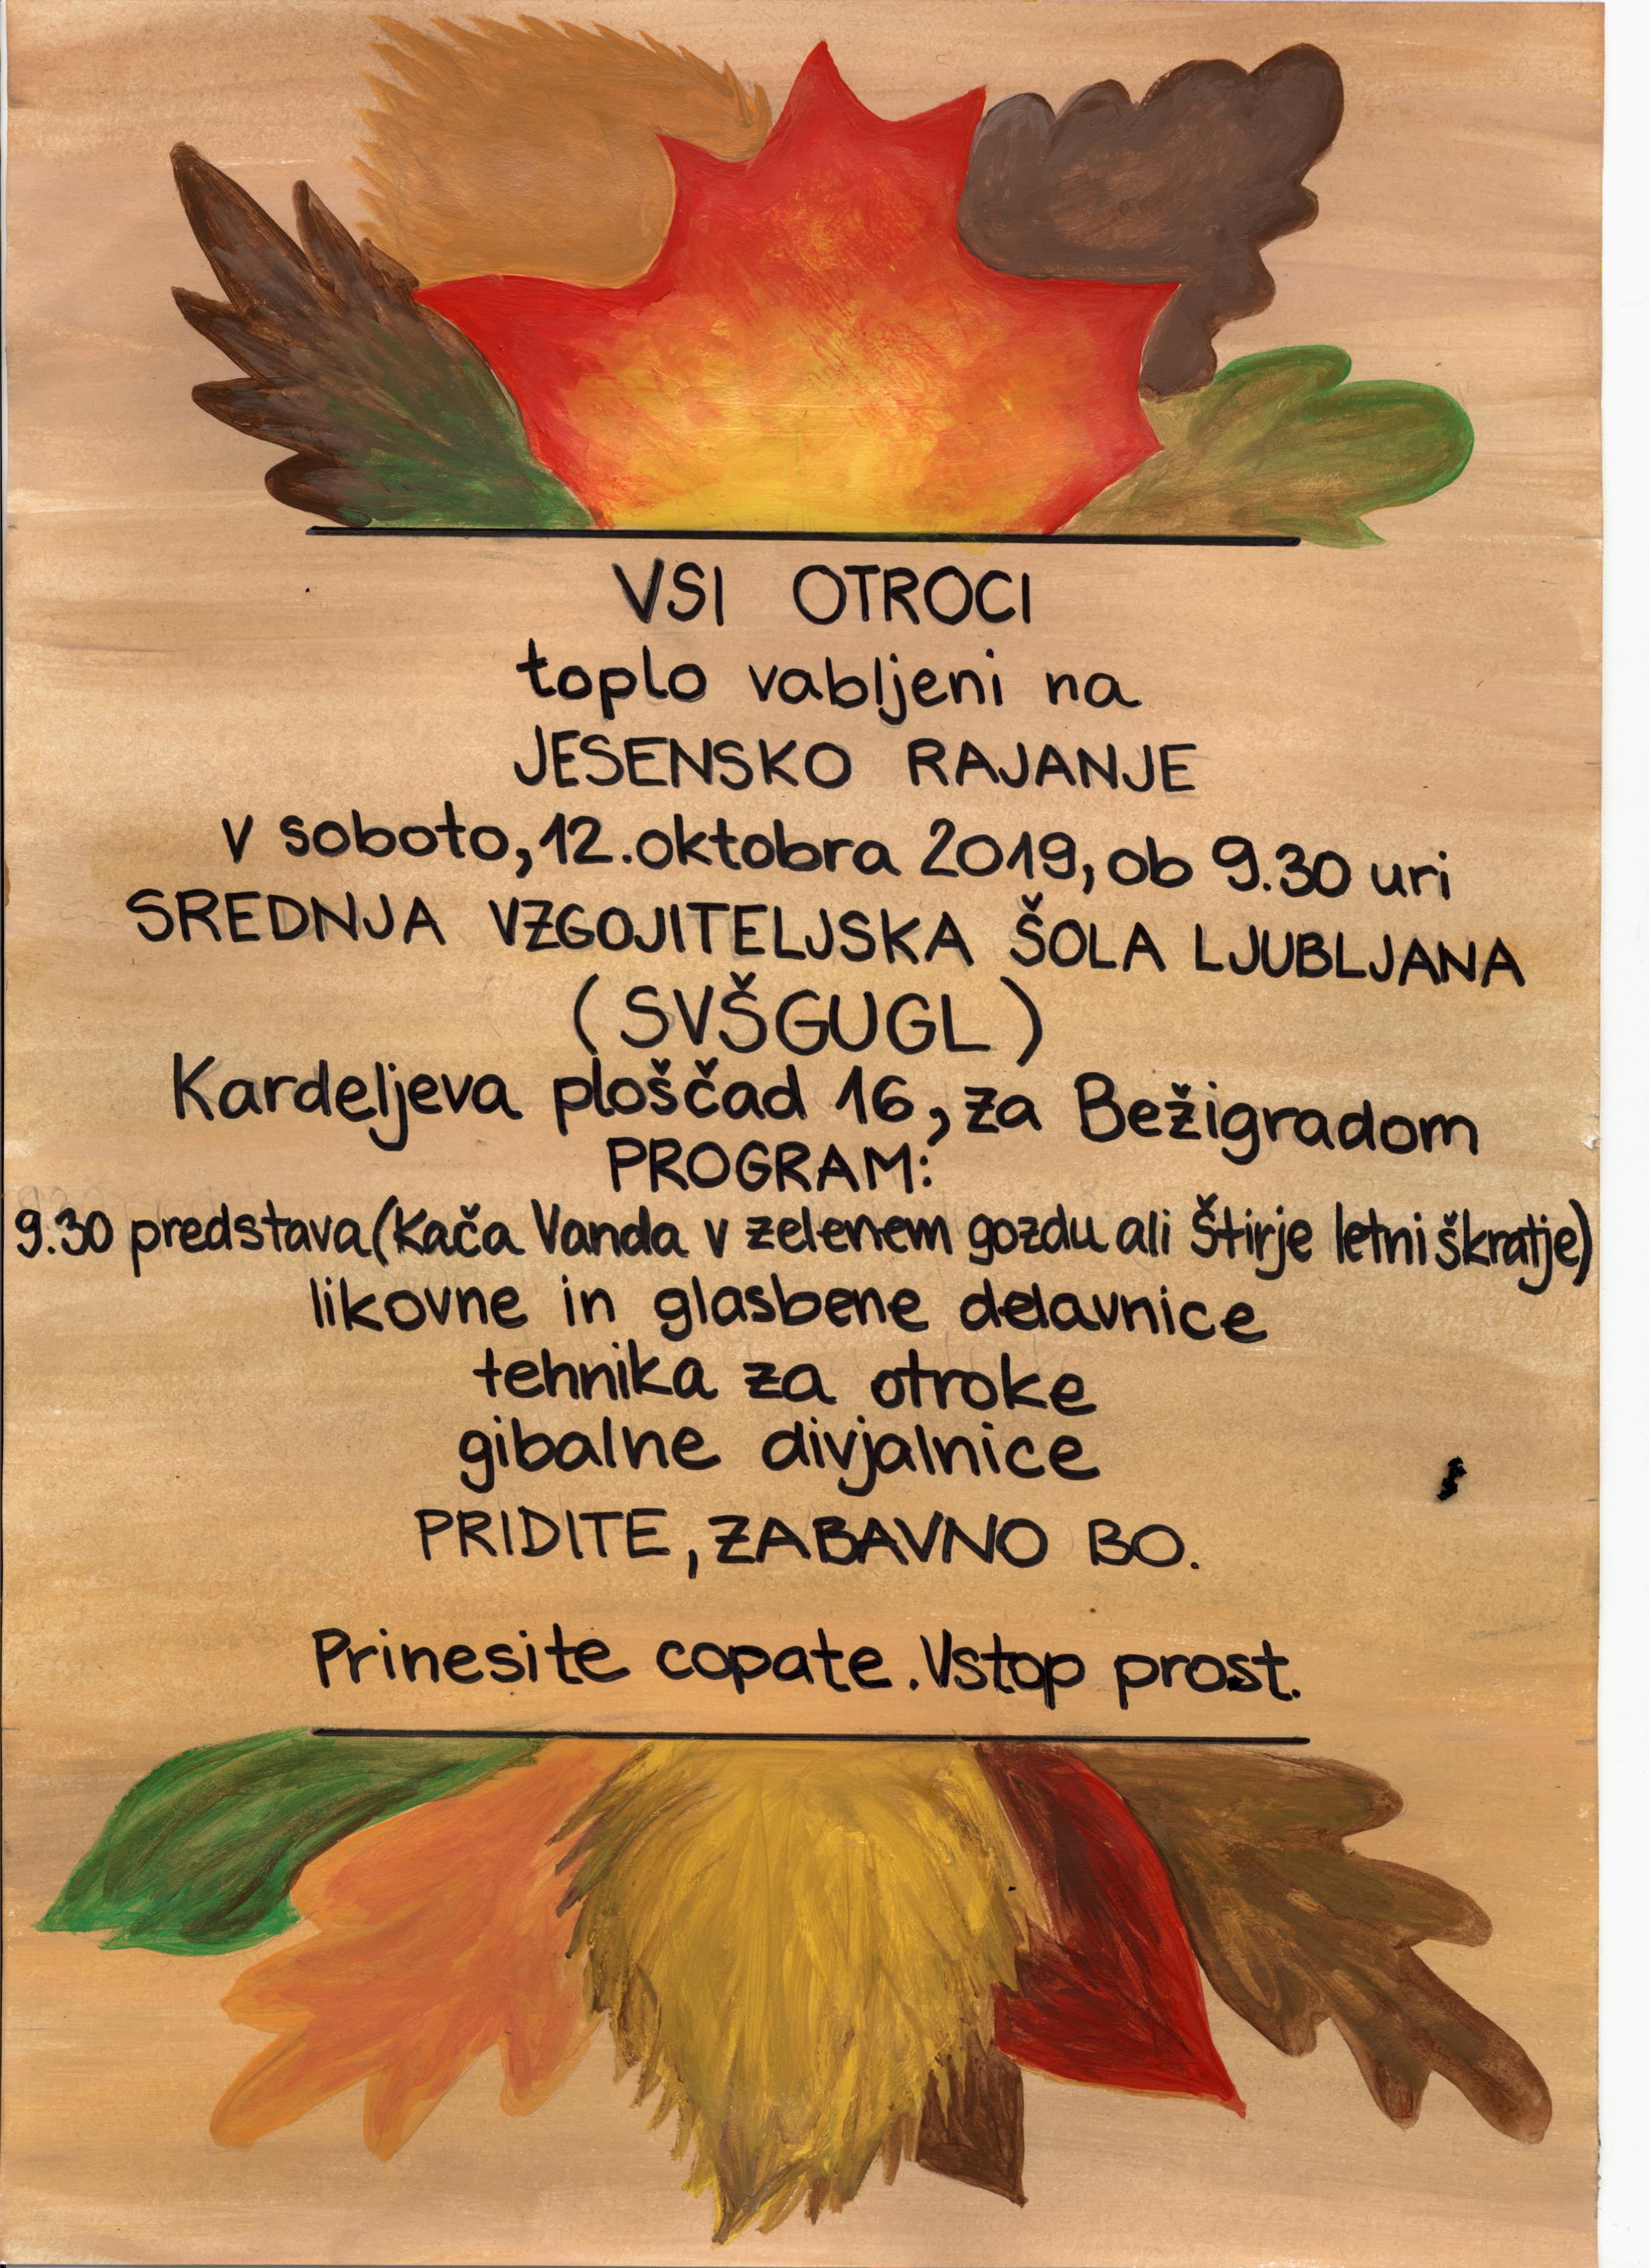 VSI OTROCI
toplo vabljeni na
JESENSKO RAJANJE
v soboto, 12. oktobra 2019, ob 9.30 uri
SREDNJA VZGOJITELJSKA ŠOLA LJUBLJANA
(SVŠGUGL)
Kardeljeva ploščad 16, za Bežigradom
PROGRAM:
9.30 predstava (Kača Vanda v zelenem gozdu ali Štirje letni škratje)
likovne in glasbene delavnice
tehnika za otroke
gibalne divjalnice
PRIDITE, ZABAVNO BO.
Prinesite copate. Vstop prost.